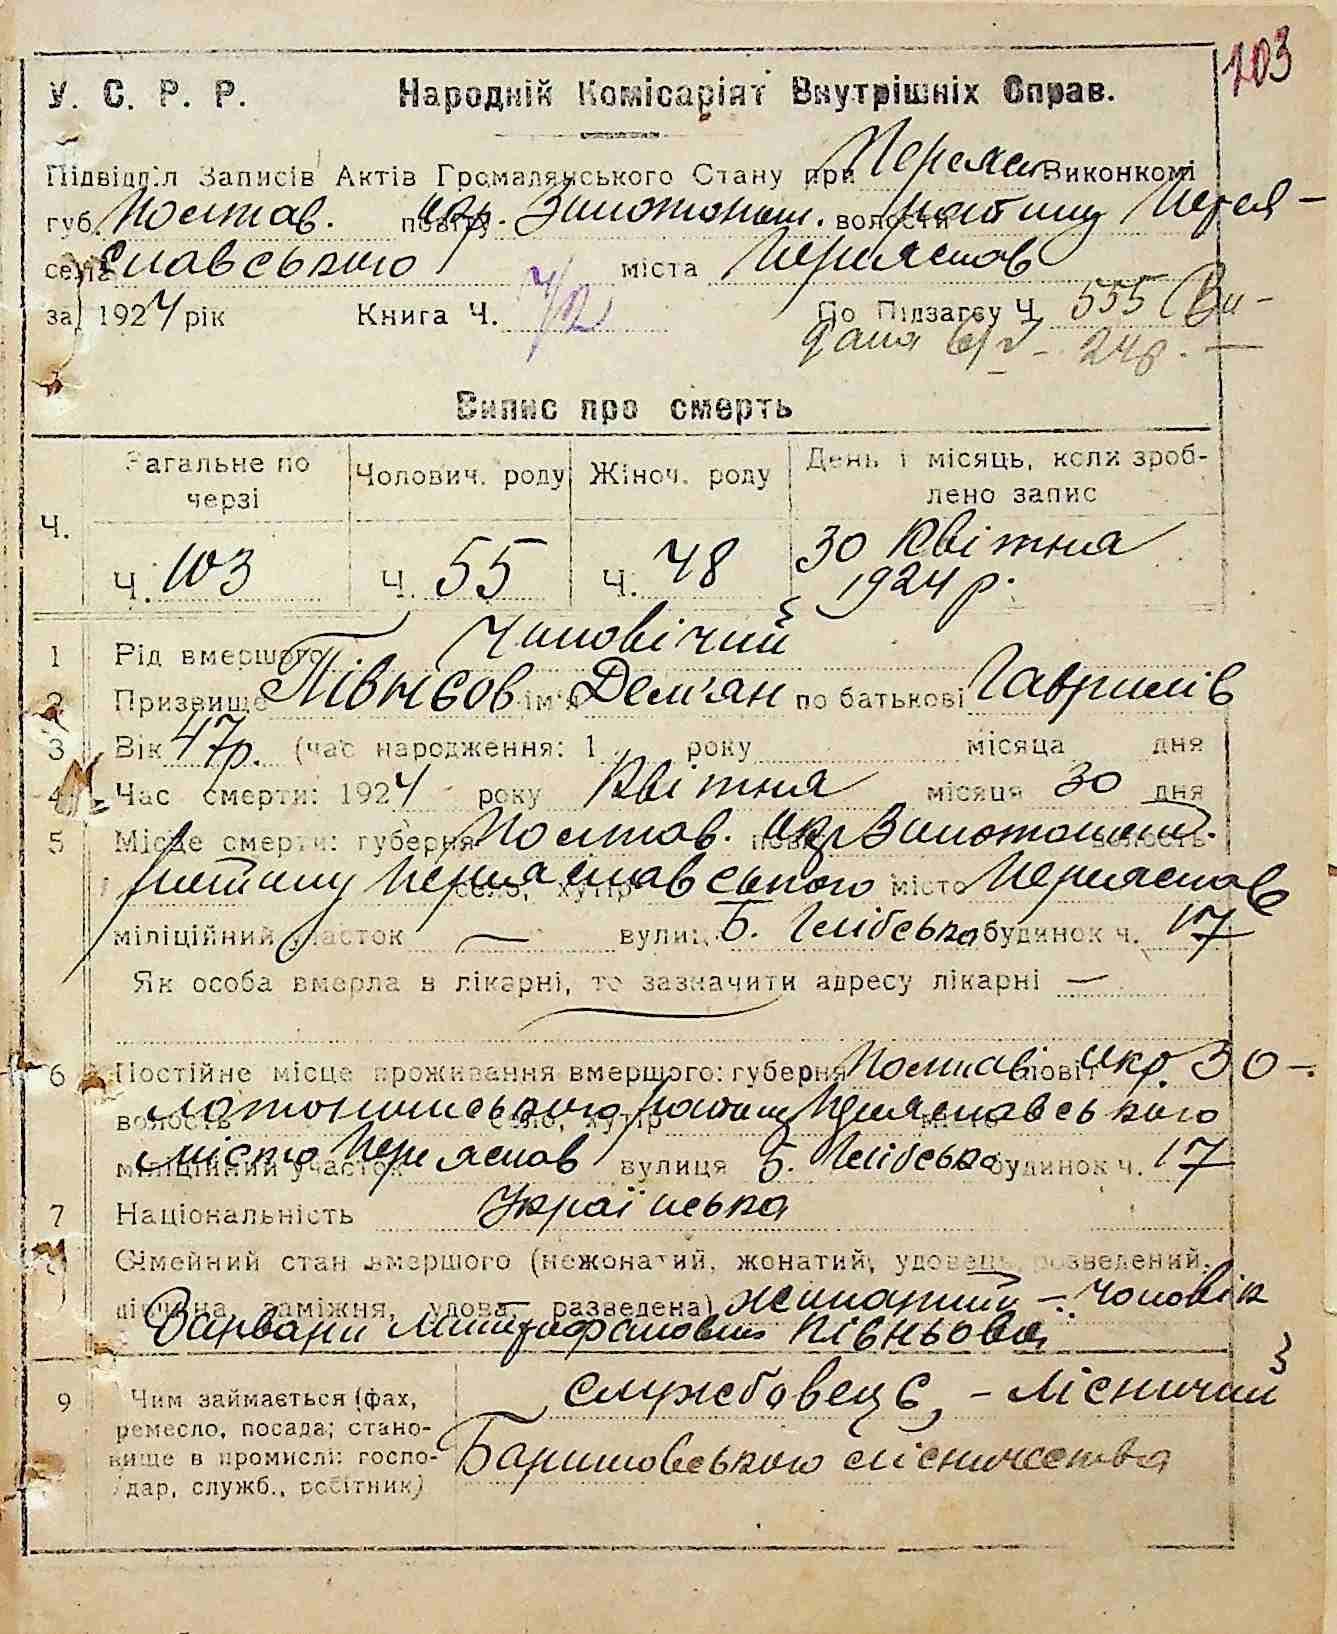 103
У. С. Р. Р. Народній Комісаріят Внутрішніх Справ.
Підвідділ Записів Актів Громадянського Стану при Переяс. Виконкомі
губ. Полтав. повіту окр. Золотоніш. волости району Перея-
села славського міста Переяслов
за 1924 рік Книга Ч. По Підзагсу Ч. 555 (Ви-
дана 6/V - 24р. —
Випис про смерть
Ч. Загальне по черзі Чолович. роду Жіноч. роду День і місяць, коли зроб-
лено запис
Ч. 103 Ч. 55 Ч. 48 30 Квітня
1924 р.
1 Рід вмершого Чоловічий
2 Призвище Півнєвов ім'я Дем'ян по батькові Гаврилів
3 Вік 47р. (час народження: 1 року місяца дня
4 Час смерти: 1924 року Квітня місяця 30 дня
5 Місце смерти: губерня Полтав. повіт окр Золотоніськ. волость
району Переяславського село, хутір місто Переяслов
міліційний участок — вулиц. Б. Глібська будинок ч. 17
Як особа вмерла в лікарні, то зазначити адресу лікарні —
6 Постійне місце проживання вмершого: губерня Полтав повіт окр. Зо-
волость лотоніського село, хутір району Переяславського місто
міліційний участок місто Переяслов вулиця Б. Глібська будинок ч. 17
7 Національність Українська
Сімейний стан вмершого (нежонатий, жонатий, удовець, розведений,
дівчина, заміжня, удова, разведена) жонатий —: Чоловік
Варвари Митрофановни Півньова
9 Чим займається (фах,
ремесло, посада; стано-
вище в промислі: госпо-
дар, служб., робітник)
службовець, - лісничий
Баришовського лісничества